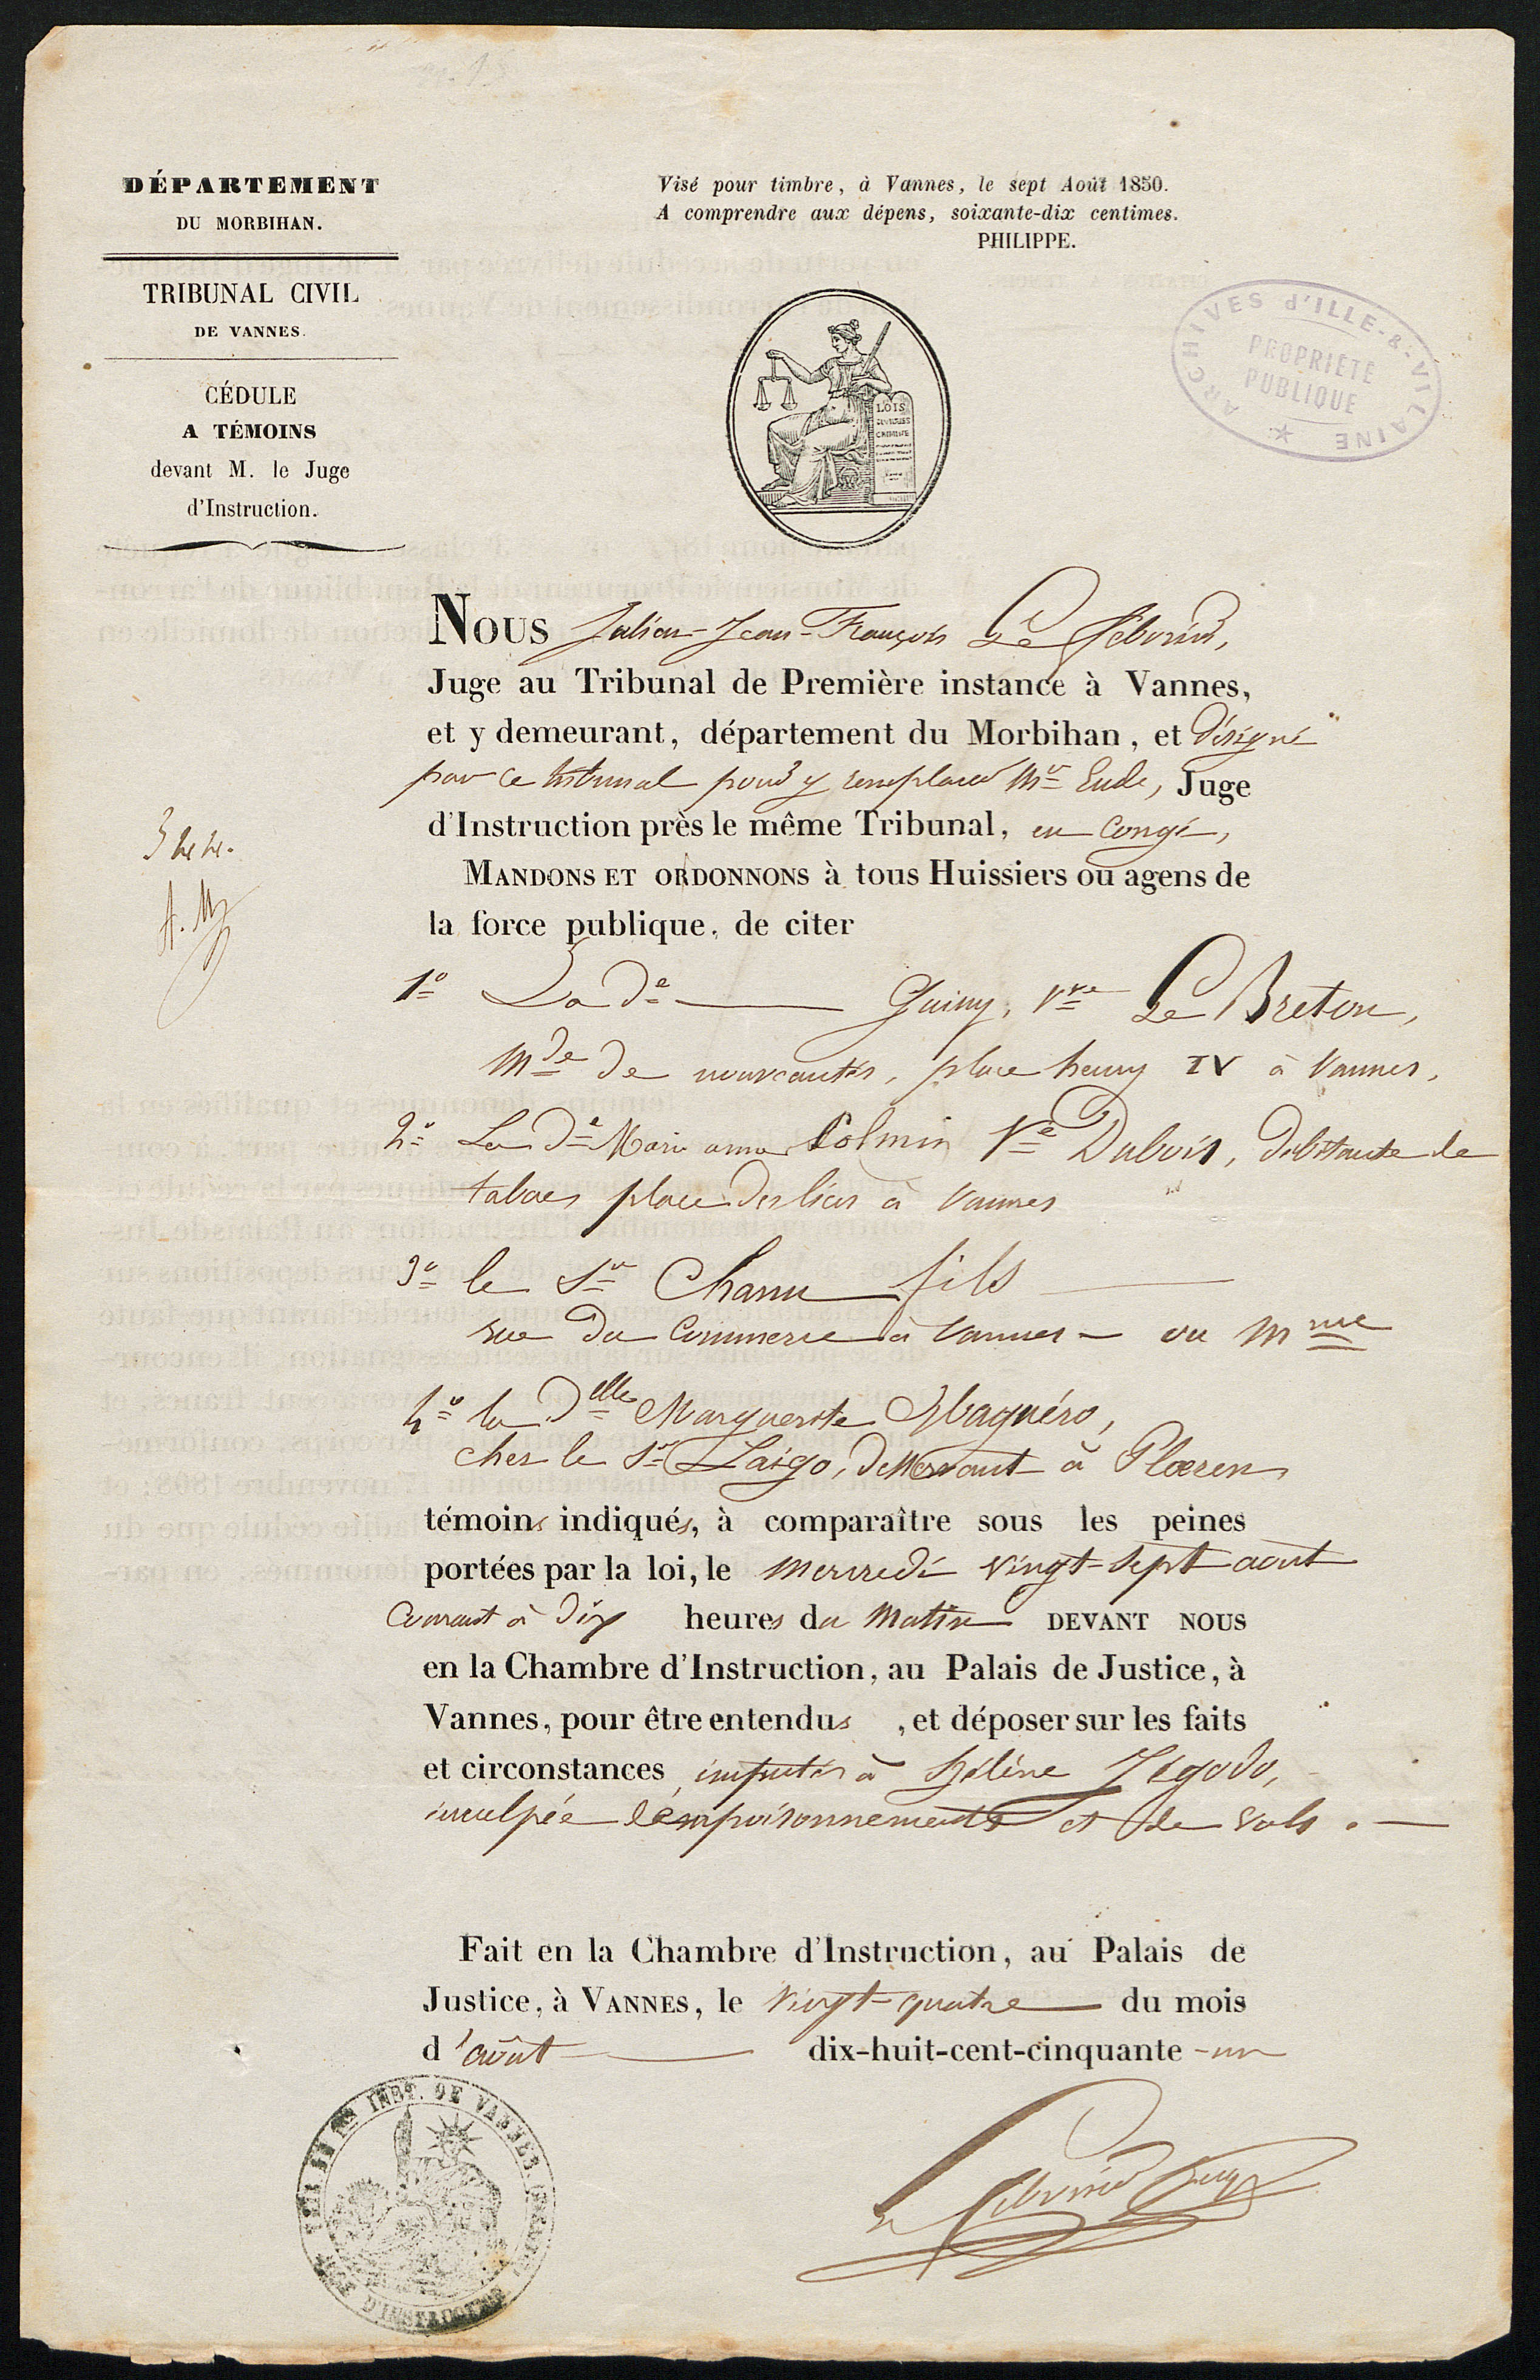 DÉPARTEMENT
DU MORBIHAN.
TRIBUNAL CIVIL
DE VANNES.
CÉDULE
A TÉMOINS
devant M. le Juge
d'Instruction.
Visé pour timbre, à Vannes, le sept Août 1850.
A comprendre aux dépens, soixante-dix centimes.
PHILIPPE.
ARCHIVES d'ILLE-&-VILAINE
PROPRIÉTÉ
PUBLIQUE
LOIS
NOUS Julien-Jean-François Le Febvrier,
Juge au Tribunal de Première instance à Vannes,
et y demeurant, département du Morbihan, et désigné
par ce tribunal pour y remplacer Mr Eude, Juge
d'Instruction près le même Tribunal, en congé,
MANDONS ET ORDONNONS à tous Huissiers ou agens de
la force publique, de citer
1º La de Guimy, Vve Le Breton,
Mde de nouveautés, place henry IV à Vannes,
2º La de Marie anne Colmin Ve Dubois, débitante de
tabacs place des lices à Vannes
3º le Sr Chanu fils
rue du Commerce à Vannes - ou Mme
4º la delle Marguerite
chez le Sr Laigo, desservant à Ploeren
témoins indiqués, à comparaître sous les peines
portées par la loi, le mercredi vingt-sept aout
Courant à dix heures du Matin DEVANT NOUS
en la Chambre d'Instruction, au Palais de Justice, à
Vannes, pour être entendus, et déposer sur les faits
et circonstances imputés à hélène Jégado,
inculpée d'empoisonnements et de vols.
Fait en la Chambre d'Instruction, au Palais de
Justice, à VANNES, le vingt-quatre du mois
d'août dix-huit-cent-cinquante-un
INST. DE VANNES
D'INSTRUCTION
Le Febvrier Juge